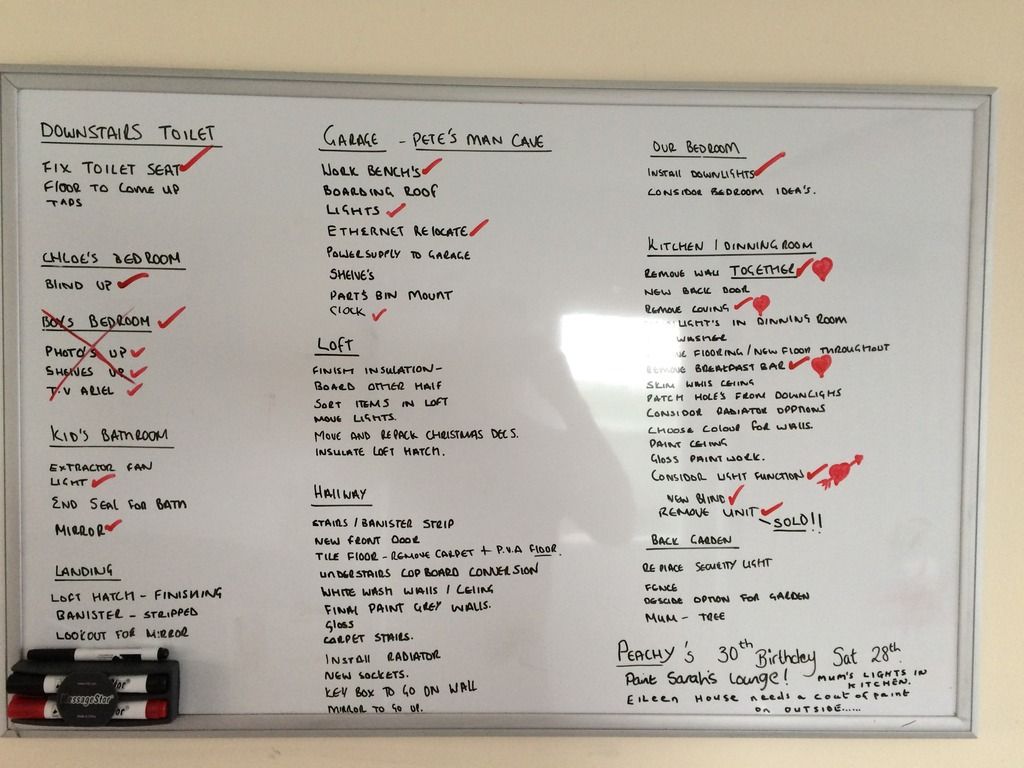 DOWNSTAIRS TOILET
FIX TOILET SEAT
FLOOR TO COME UP
TAPS
CHLOE'S BEDROOM
BLIND UP
BOYS BEDROOM
PHOTO'S UP
SHELVES UP
T.V ARIEL
KID'S BATHROOM
EXTRACTOR FAN
LIGHT
END SEAL FOR BATH
MIRROR
LANDING
LOFT HATCH - FINISHING
BANISTER - STRIPPED
LOOKOUT FOR MIRROR
GARAGE - PETE'S MAN CAVE
WORK BENCH'S
BOARDING ROOF
LIGHTS
ETHERNET RELOCATE
POWERSUPPLY TO GARAGE
SHELVE'S
PART'S BIN MOUNT
CLOCK
LOFT
FINISH INSULATION-
BOARD OTHER HALF
SORT ITEMS IN LOFT
MOVE LIGHTS.
MOVE AND REPACK CHRISTMAS DECS.
INSULATE LOFT HATCH.
HALLWAY
STAIRS / BANISTER STRIP
NEW FRONT DOOR
TILE FLOOR - REMOVE CARPET + P.V.A FLOOR.
UNDERSTAIRS COPBOARD CONVERSION
WHITE WASH WALLS / CELING
FINAL PAINT GREY WALLS.
GLOSS
CARPET STAIRS.
INSTALL RADIATOR
NEW SOCKETS.
KEY BOX TO GO ON WALL
MIRROR TO GO UP.
OUR BEDROOM
INSTALL DOWNLIGHTS
CONSIDOR BEDROOM IDEA'S.
KITCHEN / DINNINGROOM
REMOVE WALL TOGETHER
NEW BACK DOOR
REMOVE COVING
IN DINNING ROOM
WASHER
FLOORING / NEW FLOOR THROUGHOUT
REMOVE BREAKFAST BAR
SKIM WALLS CELING
PATCH HOLES FROM DOWNLIGHS
CONSIDOR RADIATOR OPPTIONS
CHOOSE COLOUR FOR WALLS.
PAINT CELING
GLOSS PAINTWORK.
CONSIDOR LIGHT FUNCTION
NEW BLIND
REMOVE UNIT
SOLD!!
BACK GARDEN
REPLACE SECURITY LIGHT
FENCE
DESCIDE OPTION FOR GARDEN
MUM - TREE
PEACHY'S 30th Birthday Sat 28th.
Paint Sarah's Lounge!
MUM'S LIGHTS IN
KITCHEN.
Eileen House needs a coat of paint
on OUTSIDE......
MessageStor